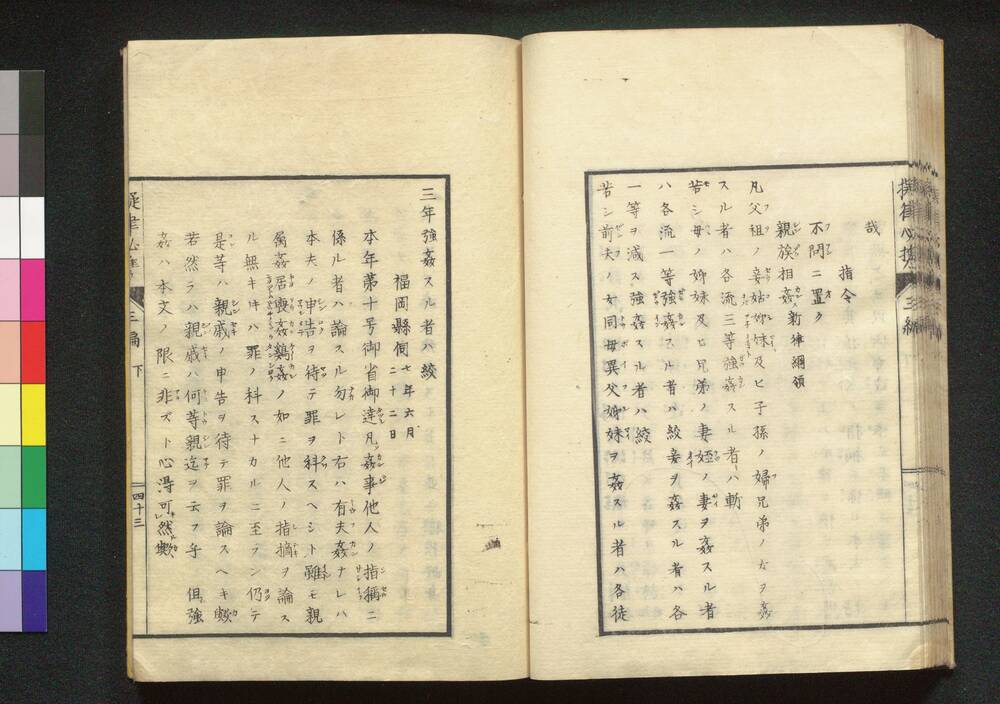 哉
指令
不問ニ置ク
親族相姦 新律綱領
凡父祖ノ妾姑姉妹及ヒ子孫ノ婦兄弟ノ女ヲ姦
スル者ハ各流三等強姦スル者ハ斬
若シ母ノ姉妹及ヒ兄弟ノ妻姪ノ妻ヲ姦スル者
ハ各流一等強姦スル者ハ絞妾ヲ姦スル者ハ各
一等ヲ減ス強姦スル者ハ絞
若シ前夫ノ女同母異父姉妹ヲ姦スル者ハ各徒
三年強姦スル者ハ絞
福岡縣伺 七年六月二十二日
本年第十号御省御達凡ソ姦事他人ノ指稱ニ
係ル者ハ論スル勿レト右ハ有夫姦ナレハ
本夫ノ申告ヲ待テ罪ヲ科スヘシト雖モ親
屬姦居喪姦鷄姦ノ如ニ他人ノ指摘ヲ論ス
ル無キ時ハ罪ノ科スナカルニ至ラン仍テ
是等ハ親戚ノ申告ヲ待テ罪ヲ論スヘキ歟
若然ラハ親戚ハ何等親迄ヲ云フ乎 但強
姦ハ本文ノ限ニ非ズト心得可然歟
三編 下
四十三